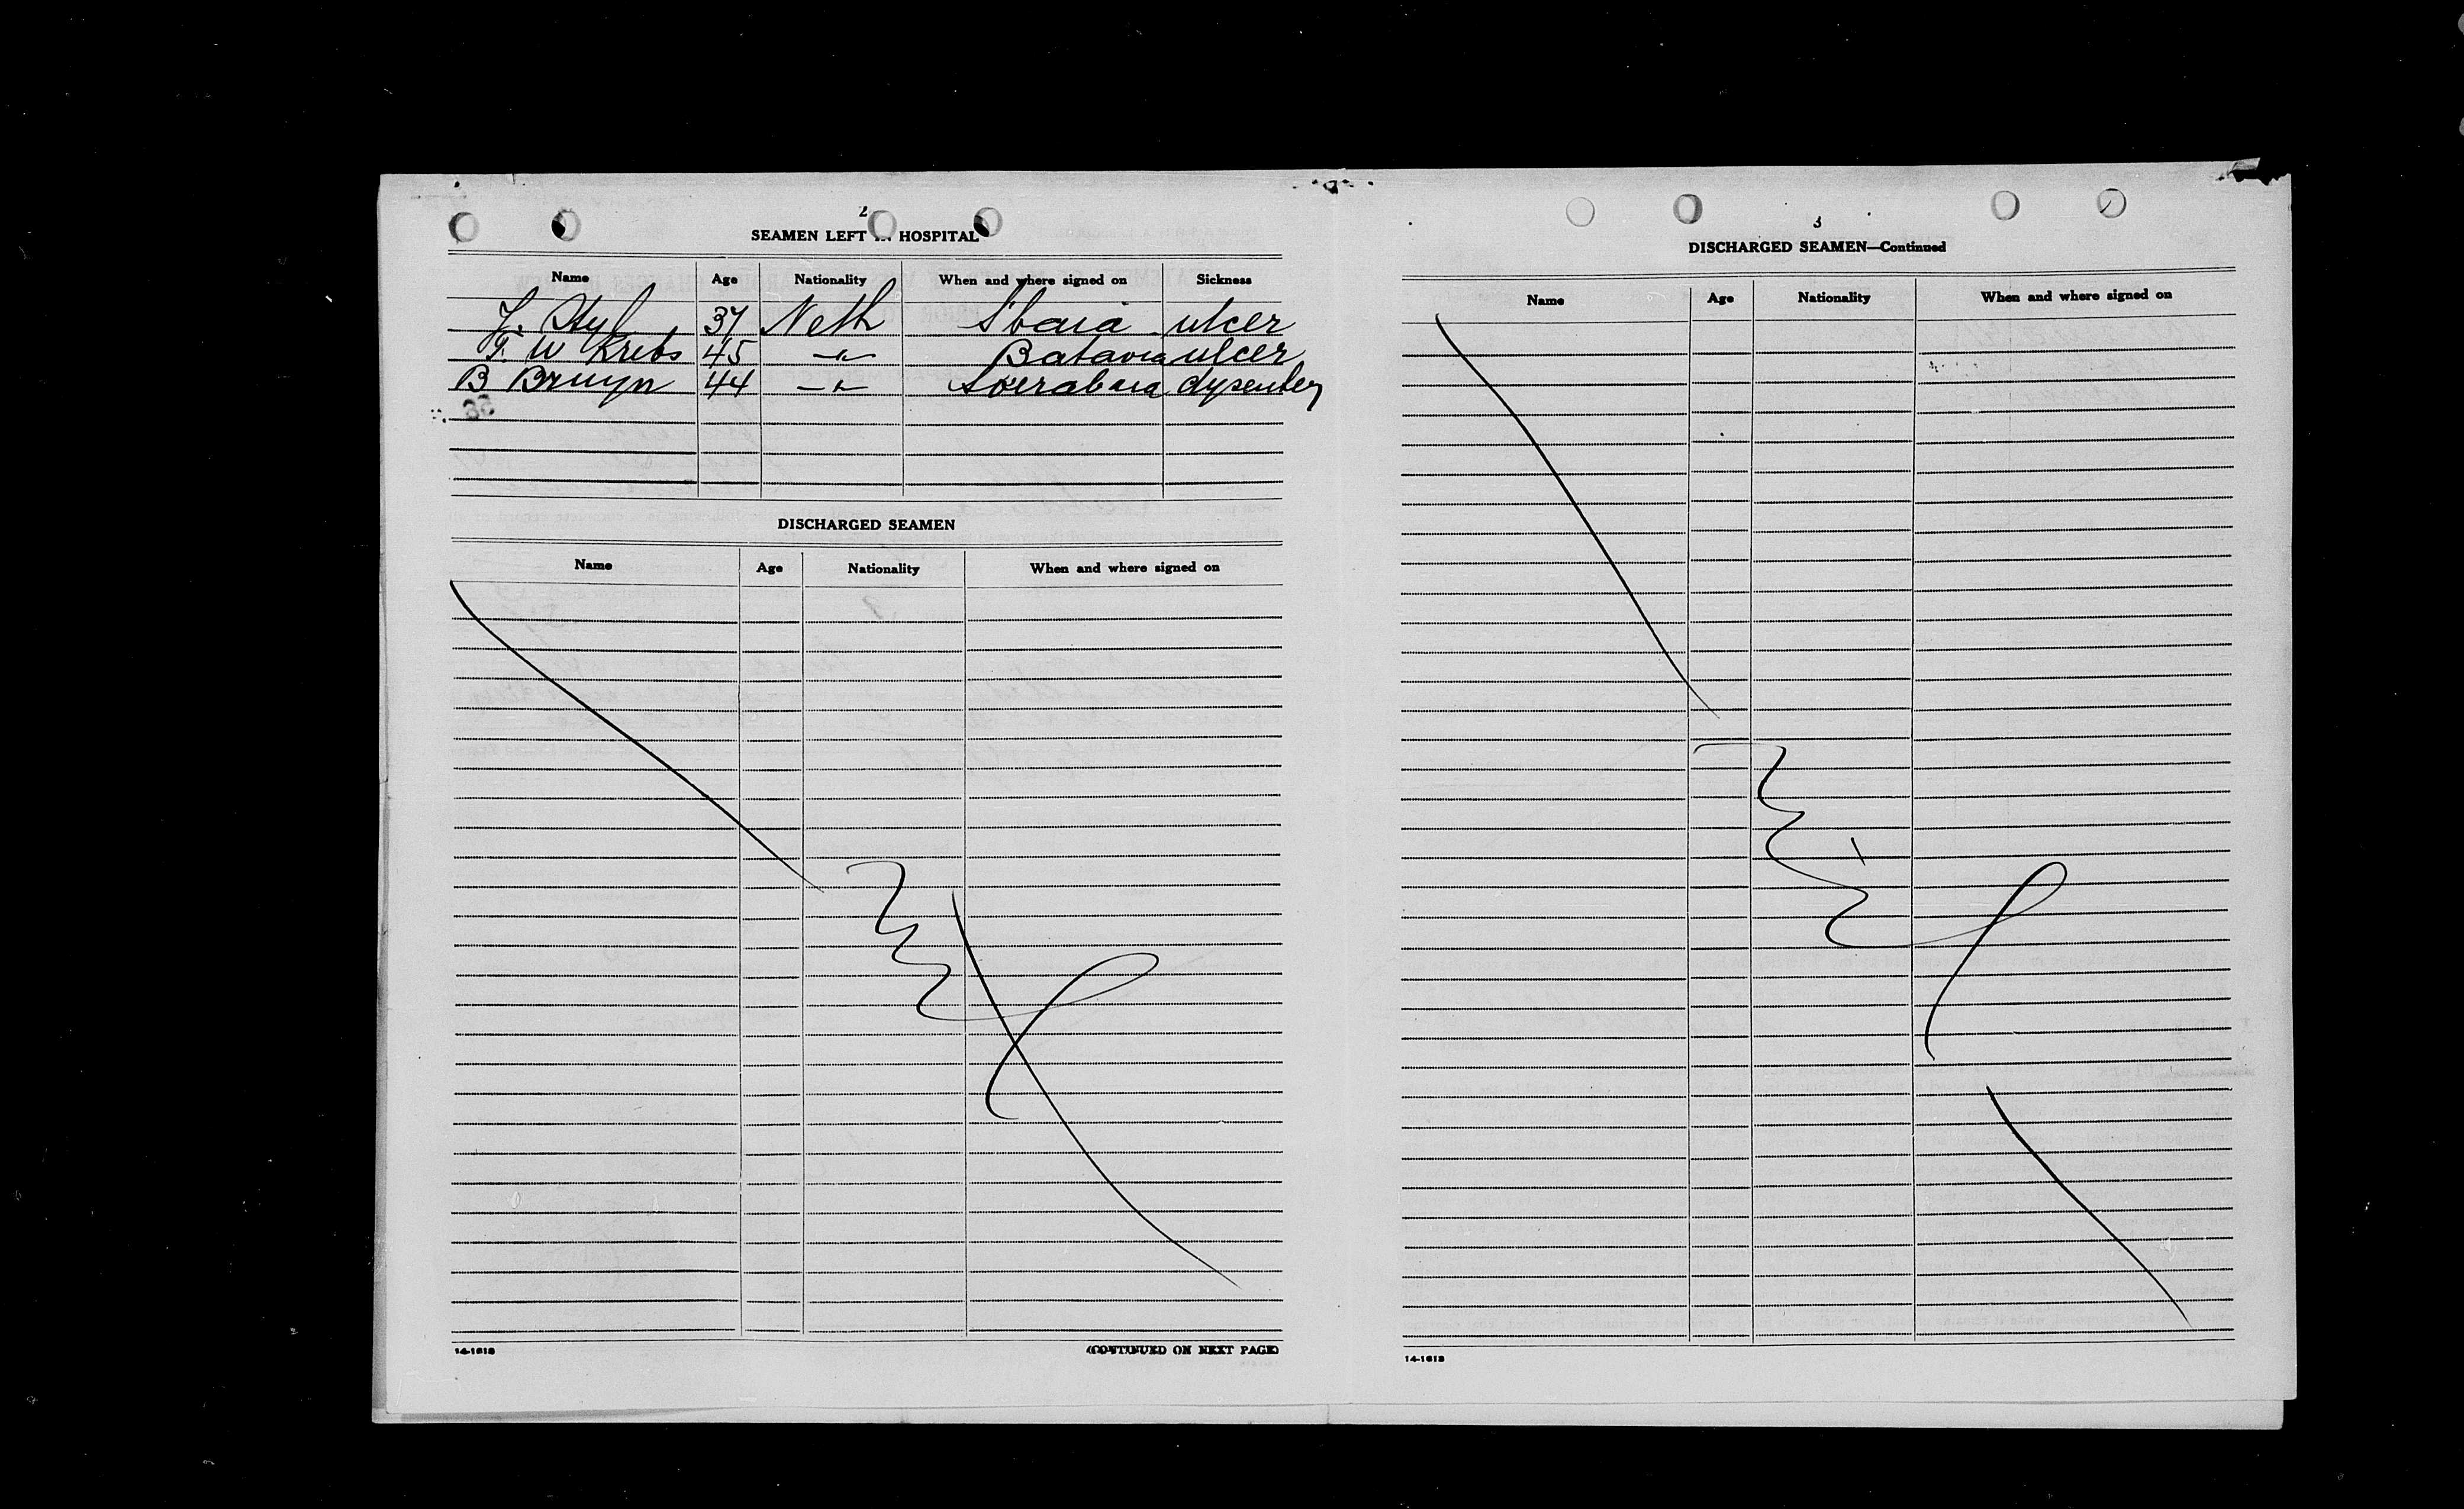 2
SEAMEN LEFT IN HOSPITAL
Name Age Nationality When and where signed on Sickness
37 Neth S'baia ulcer
F. W Krebs 45 —〃— Batavia ulcer
B Bruyn 44 —〃— Soerabaia dysentery
DISCHARGED SEAMEN
Name Age Nationality When and where signed on
14-1618
(CONTINUED ON NEXT PAGE)
3
DISCHARGED SEAMEN—Continued
Name Age Nationality When and where signed on
14-1618